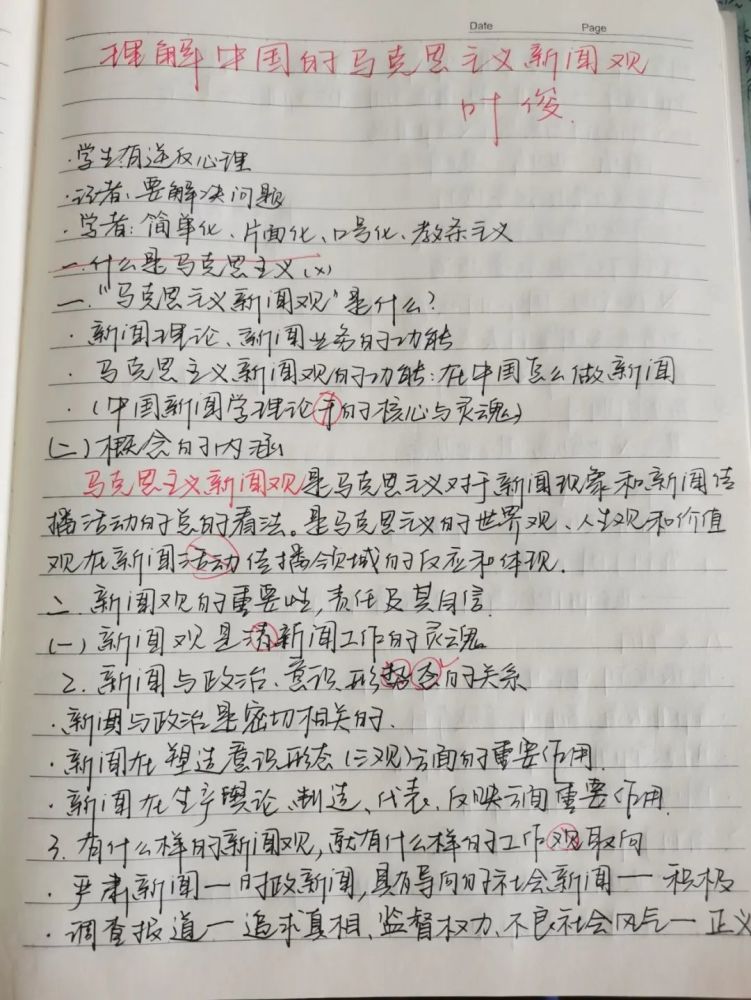 Date Page
理解中国的马克思主义新闻观
叶俊.
·学生有逆反心理
·记者:要解决问题
·学者:简单化、片面化、口号化、教条主义
一.什么是马克思主义(x)
一."马克思主义新闻观"是什么?
·新闻理论、新闻业务的功能
·马克思主义新闻观的功能:在中国怎么做新闻
·(中国新闻学理论的核心与灵魂)
(二)概念的内涵
马克思主义新闻观是马克思主义对于新闻现象和新闻传
播活动的总的看法。是马克思主义的世界观、人生观和价值
观在新闻活动传播领域的反应和体现.
二.新闻观的重要性,责任及其自信.
(一)新闻观是新闻工作的灵魂
2.新闻与政治、意识形态的关系
·新闻与政治是密切相关的.
·新闻在塑造意识形态(三观)方面的重要作用.
·新闻在生产舆论、制造、代表、反映方面重要作用.
3.有什么样的新闻观,就有什么样的工作观取向
·严肃新闻一时政新闻,具有导向的社会新闻一积极
·调查报道一追求真相、监督权力、不良社会风气一正义